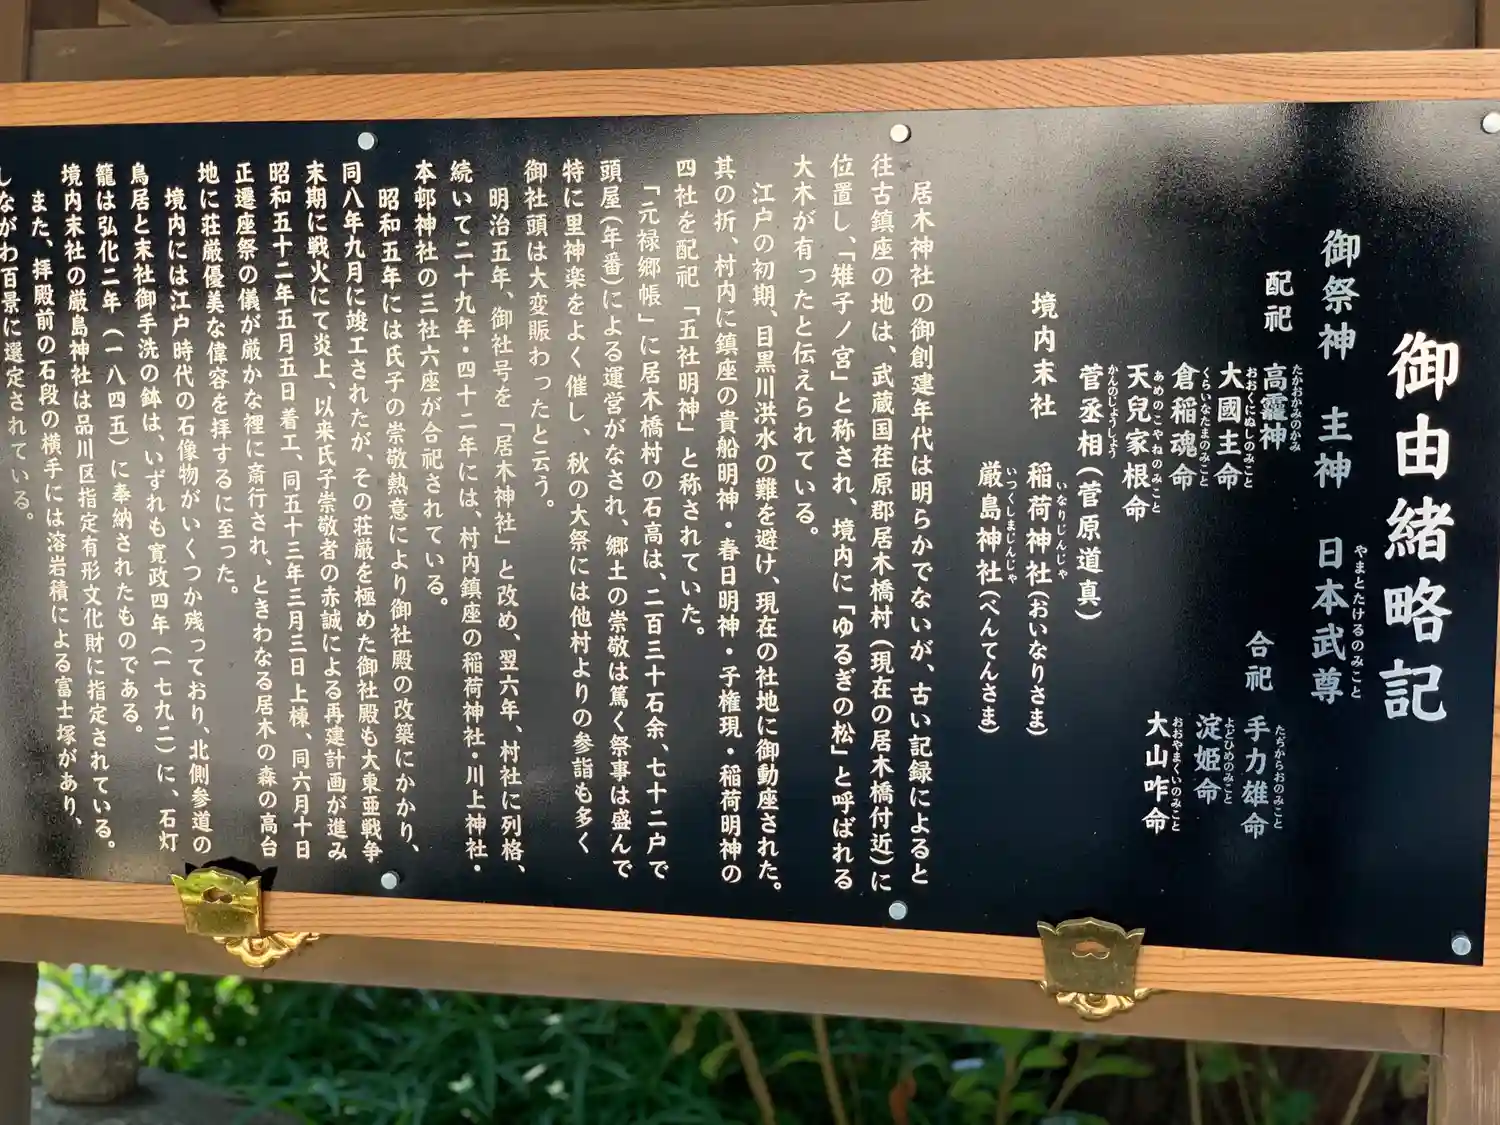 御由緒略記
御祭神 主神 日本武尊
やまとたけるのみこと
配祀 高龗神
たかおかみのかみ
大國主命
おおくにぬしのみこと
倉稲魂命
くらいなたまのみこと
天兒家根命
あめのこやねのみこと
菅丞相(菅原道真)
かんのじょうしょう
合祀 手力雄命
たぢからおのみこと
淀姫命
よどひめのみこと
大山咋命
おおやまくいのみこと
境内末社 稲荷神社(おいなりさま)
いなりじんじゃ
厳島神社(べんてんさま)
いつくしまじんじゃ
居木神社の御創建年代は明らかでないが、古い記録によると
往古鎮座の地は、武蔵国荏原郡居木橋村(現在の居木橋付近)に
位置し、「雉子ノ宮」と称され、境内に「ゆるぎの松」と呼ばれる
大木が有ったと伝えられている。
江戸の初期、目黒川洪水の難を避け、現在の社地に御動座された。
其の折、村内に鎮座の貴船明神・春日明神・子権現・稲荷明神の
四社を配祀「五社明神」と称されていた。
「元禄郷帳」に居木橋村の石高は、二百三十石余、七十二戸で
頭屋(年番)による運営がなされ、郷土の崇敬は篤く祭事は盛んで
特に里神楽をよく催し、秋の大祭には他村よりの参詣も多く
御社頭は大変賑わったと云う。
明治五年、御社号を「居木神社」と改め、翌六年、村社に列格、
続いて二十九年・四十二年には、村内鎮座の稲荷神社・川上神社・
本邨神社の三社六座が合祀されている。
昭和五年には氏子の崇敬熱意により御社殿の改築にかかり、
同八年九月に竣工されたが、その荘厳を極めた御社殿も大東亜戦争
末期に戦火にて炎上、以来氏子崇敬者の赤誠による再建計画が進み
昭和五十二年五月五日着工、同五十三年三月三日上棟、同六月十日
正遷座祭の儀が厳かな裡に斎行され、ときわなる居木の森の高台
地に荘厳優美な偉容を拝するに至った。
境内には江戸時代の石像物がいくつか残っており、北側参道の
鳥居と末社御手洗の鉢は、いずれも寛政四年(一七九二)に、石灯
籠は弘化二年(一八四五)に奉納されたものである。
境内末社の厳島神社は品川区指定有形文化財に指定されている。
また、拝殿前の石段の横手には溶岩積による富士塚があり、
しながわ百景に選定されている。